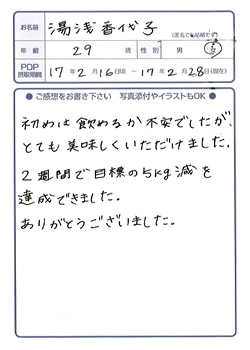 お名前 湯浅香代子 (匿名でも結構です)
年齢 29 歳 性別 男 女
PDP摂取期間 17年2月16日(始) ~ 17年2月28日(現在)
●ご感想をお書き下さい 写真添付やイラストもOK●
初めは飲めるか不安でしたが、
とても美味しくいただけました。
2週間で目標の5kg減を
達成できました。
ありがとうございました。